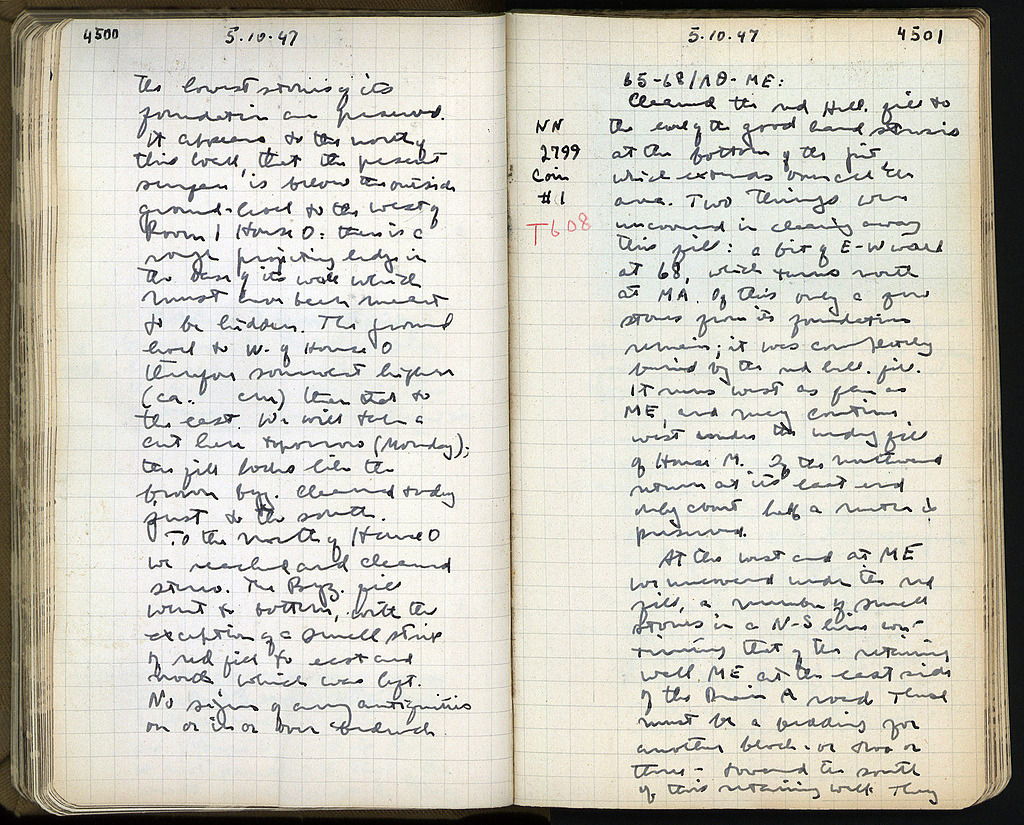 4500
5.10.47
the lowest stones of its
foundation are preserved.
It appears to the north of
this wall, that the present
surface, is below the outside
ground-level to the west of
Room 1 House O: there is a
rough projecting ledge in
the base of its wall which
must have been meant
to be hidden. The ground
level to W. of House O
therefore somewhat higher
(ca. cm) than that to
the east. We will take a
cut here tomorrow (Monday);
the fill looks like the
brown byz. cleaned today
just to the south.
To the north of House O
we reached and cleaned
stereo. The Byz. fill
went to bottom, with the
exception of a small strip
of red fill to east and
north which was left.
No signs of any antiquities
on or in or over bedrock.
5.10.47
4501
65-68/ΛΘ-ME:
Cleaned the red Hell. fill to
the end of the good hard stereo
at the bottom of the pit
which extends over all the
area. Two things were
uncovered in clearing away
this fill: a bit of E-W wall
at 68, which turns north
at MA. Of this only a few
stones from its foundation
remain; it was completely
buried by the red hell. fill.
It runs west as far as
ME, and may continue
west under the
of House M. Of the northward
return at its east end
only about half a metre is
preserved.
At the west end at ME
we uncovered under the red
fill, a number of small
stones in a N-S line con-
tinuing that of the retaining
wall ME at the east side
of the Drain A road. These
must be a bedding for
another block - or two or
three - toward the south
of this retaining wall. They
NN
2799
Coin
#1
T608